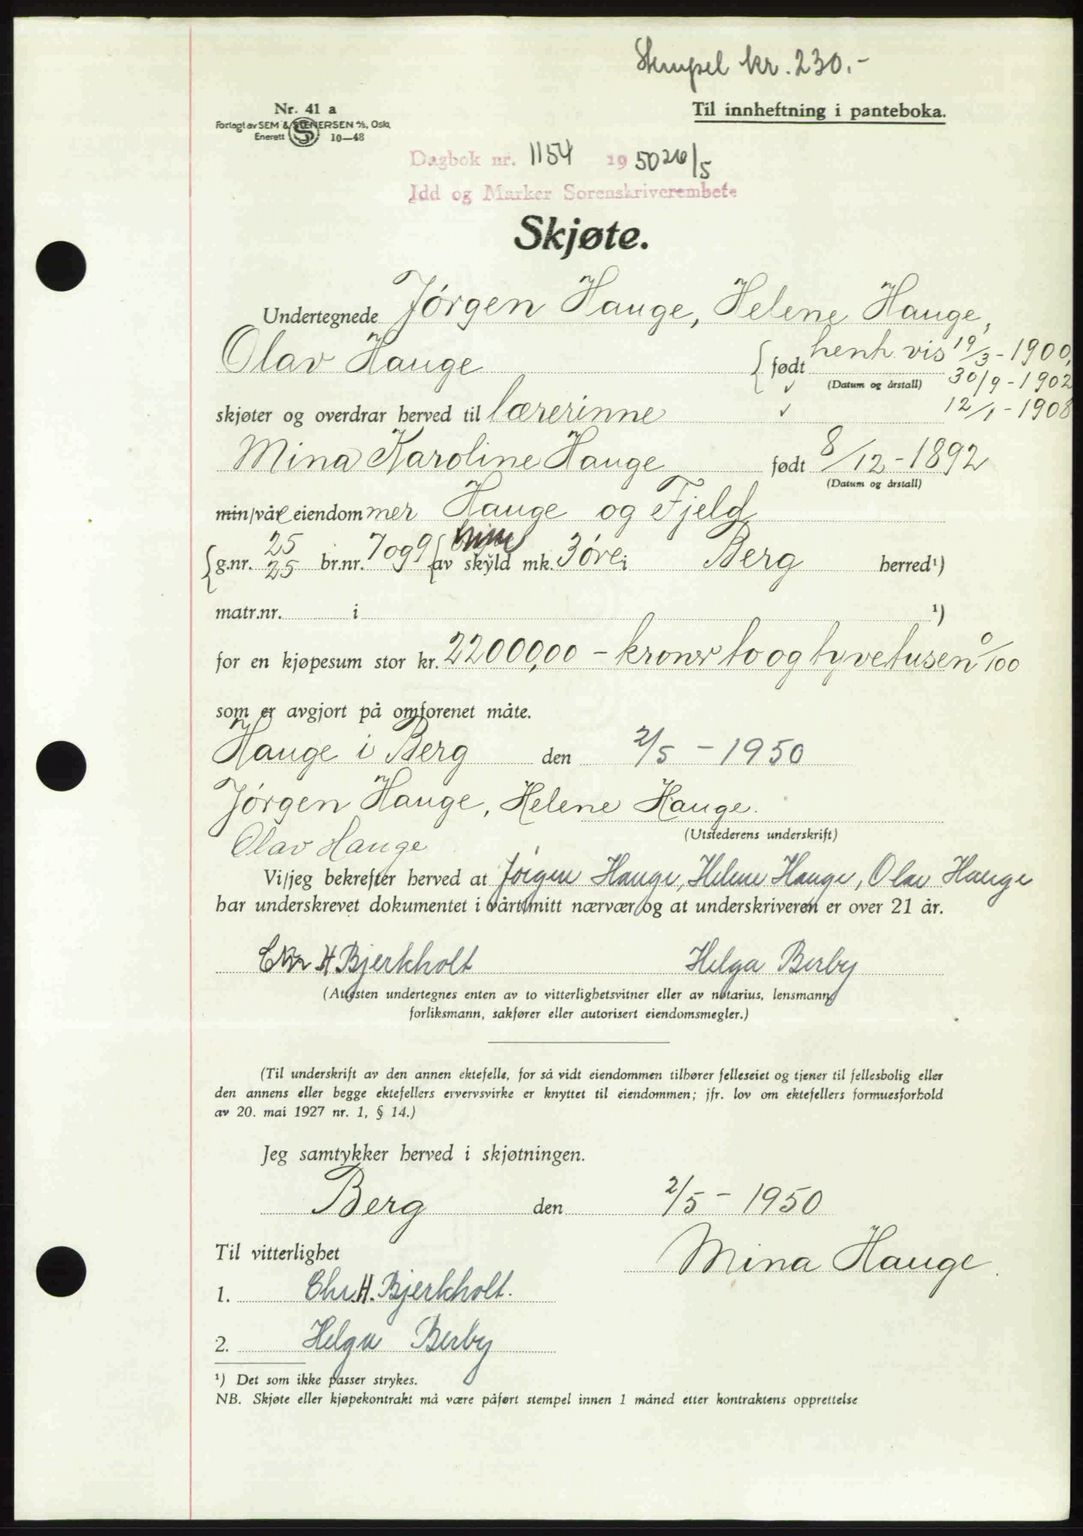 Stempel kr. 230.-
Nr. 41 a
Forlagt av SEM & STENERSEN A/S, Oslo.
Enerett S 10-48
Til innheftning i panteboka.
Dagbok nr. 1154 1950 26/5
Idd og Marker Sorenskriverembete
Skjøte.
Undertegnede Jørgen Hauge, Helene Hauge,
Olav Hauge født henh. vis 19/3-1900,
(Datum og årstall) 30/9-1902
skjøter og overdrar herved til lærerinne 12/1-1908
Mina Karoline Hauge født 8/12-1892
(Datum og årstall)
min/våre eiendommer Hauge og Fjeld
g.nr. 25 25 br.nr. 7 og 9 av skyld mk. 3 øre i Berg herred¹)
matr.nr. i ¹)
for en kjøpesum stor kr. 22000,00 - kroner to og tyvetusen 0/100
som er avgjort på omforenet måte.
Hauge i Berg den 2/5 - 1950
Jørgen Hauge, Helene Hauge.
(Utstederens underskrift)
Olav Hauge
Vi/jeg bekrefter herved at Jörgen Hauge, Helene Hauge, Olav Hauge
har underskrevet dokumentet i vårt/mitt nærvær og at underskriveren er over 21 år.
Chr H Bjerkholt Helga Berby
(Attesten undertegnes enten av to vitterlighetsvitner eller av notarius, lensmann,
forliksmann, sakfører eller autorisert eiendomsmegler.)
(Til underskrift av den annen ektefelle, for så vidt eiendommen tilhører felleseiet og tjener til fellesbolig eller
den annens eller begge ektefellers ervervsvirke er knyttet til eiendommen; jfr. lov om ektefellers formuesforhold
av 20. mai 1927 nr. 1, § 14.)
Jeg samtykker herved i skjøtningen.
Berg den 2/5 - 1950
Til vitterlighet Mina Hauge.
1. Chr. H. Bjerkholt.
2. Helga Berby
¹) Det som ikke passer strykes.
NB. Skjøte eller kjøpekontrakt må være påført stempel innen 1 måned etter kontraktens opprettelse